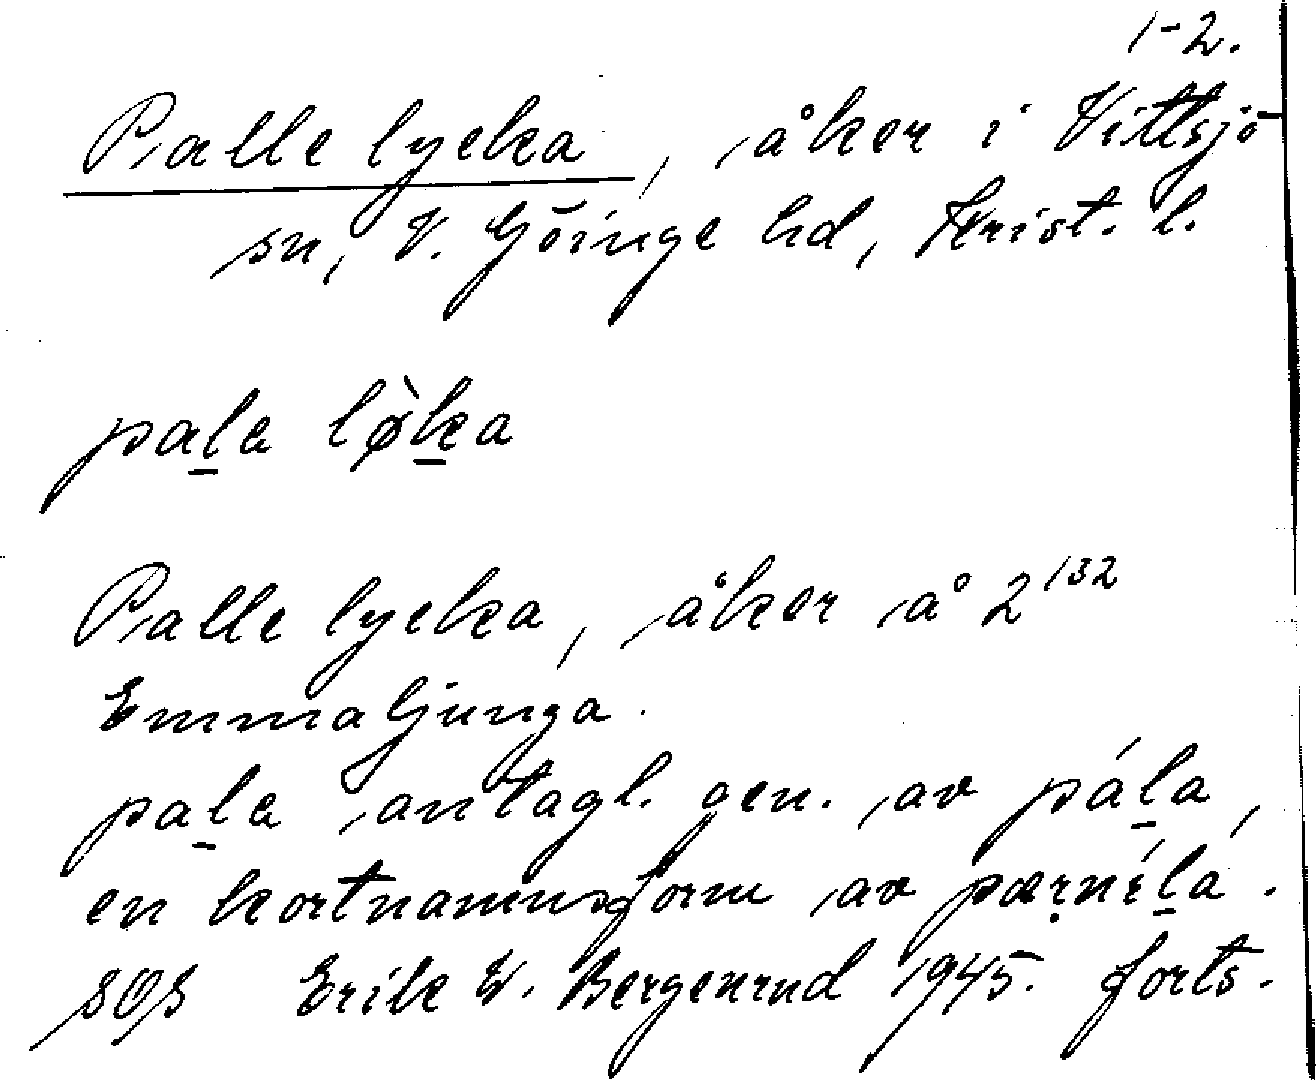 1-2.
Palle lycka, åker i Vittsjö
sn, V. Göinge hd, Krist. l.
pal̲a lø̀k̲a
Palle lycka, åker å 2¹³²
Emmaljunga.
pal̲a antagl. gen. av pál̲a,
en kortnamnsform av pærnı́l̲a.
SOS Erik W. Bergenrud 1945. forts.